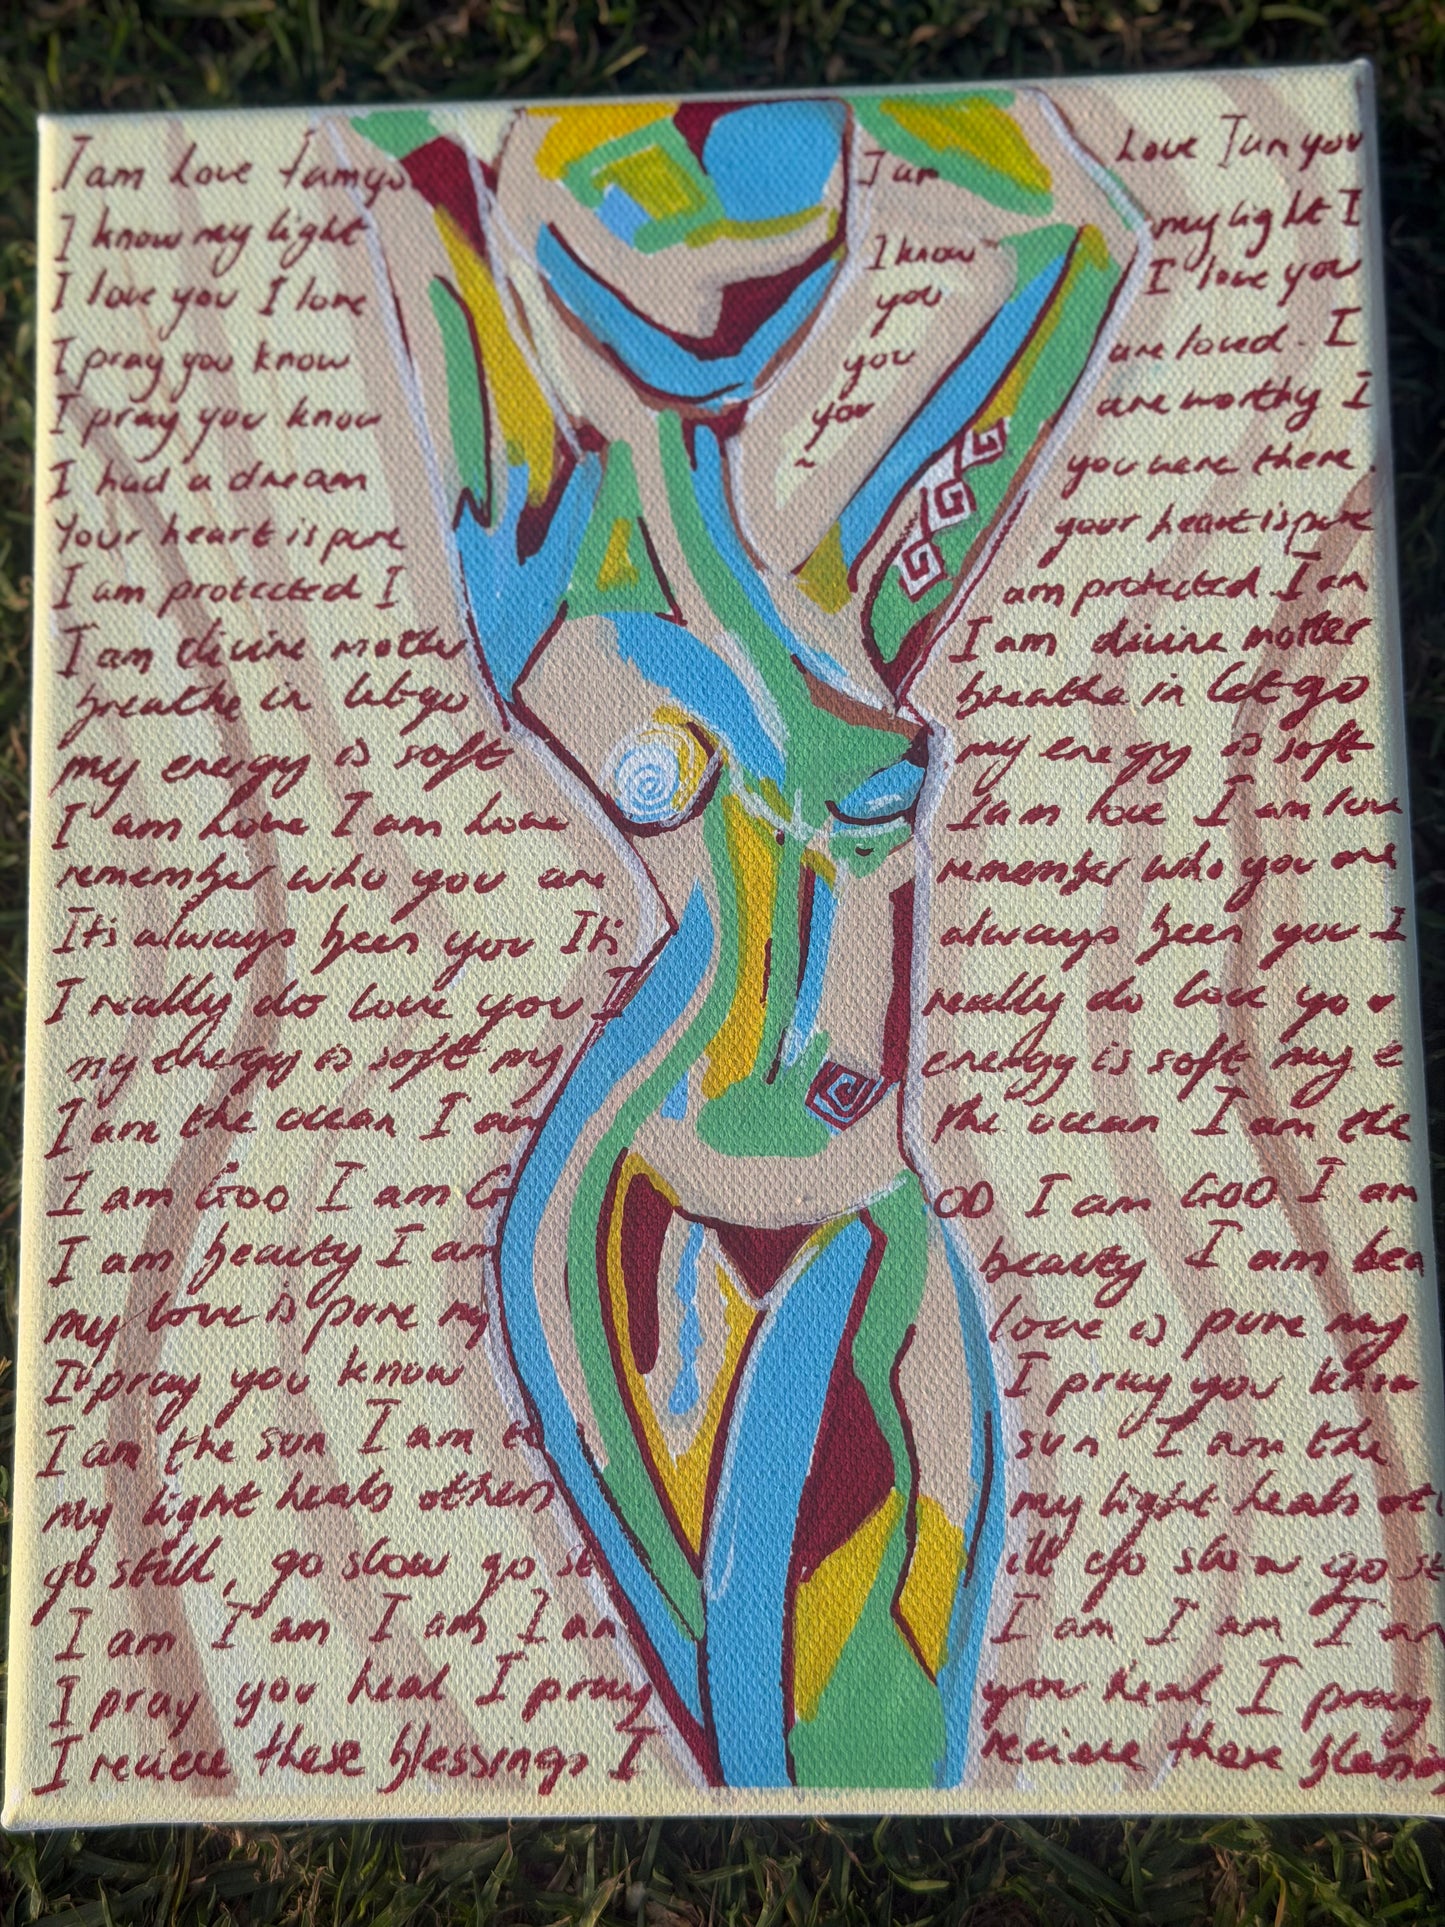 I am Love I am you I am Love I am you
I know my light I know my light I
I love you I love you I love you
I pray you know you are loved. I
I pray you know you are worthy I
I had a dream you were there.
Your heart is pure your heart is pure
I am protected I am protected I am
I am divine mother I am divine mother
breathe in let go breathe in let go
my energy is soft my energy is soft
I am love I am love I am love I am love
remember who you are remember who you are
It's always been you It's always been you I
I really do love you I really do love yo
my energy is soft my energy is soft my e
I am the ocean I am the ocean I am the
I am GOD I am GOD I am GOD I am
I am beauty I am beauty I am bea
my love is pure my love is pure my
I pray you know I pray you know
I am the sun I am t sun I am the
my light heals others my light heals ot
go still, go slow go st ill go slow go st
I am I am I am I am I am I am I am
I pray you heal I pray you heal I pray
I recieve these blessings I recieve these blessin